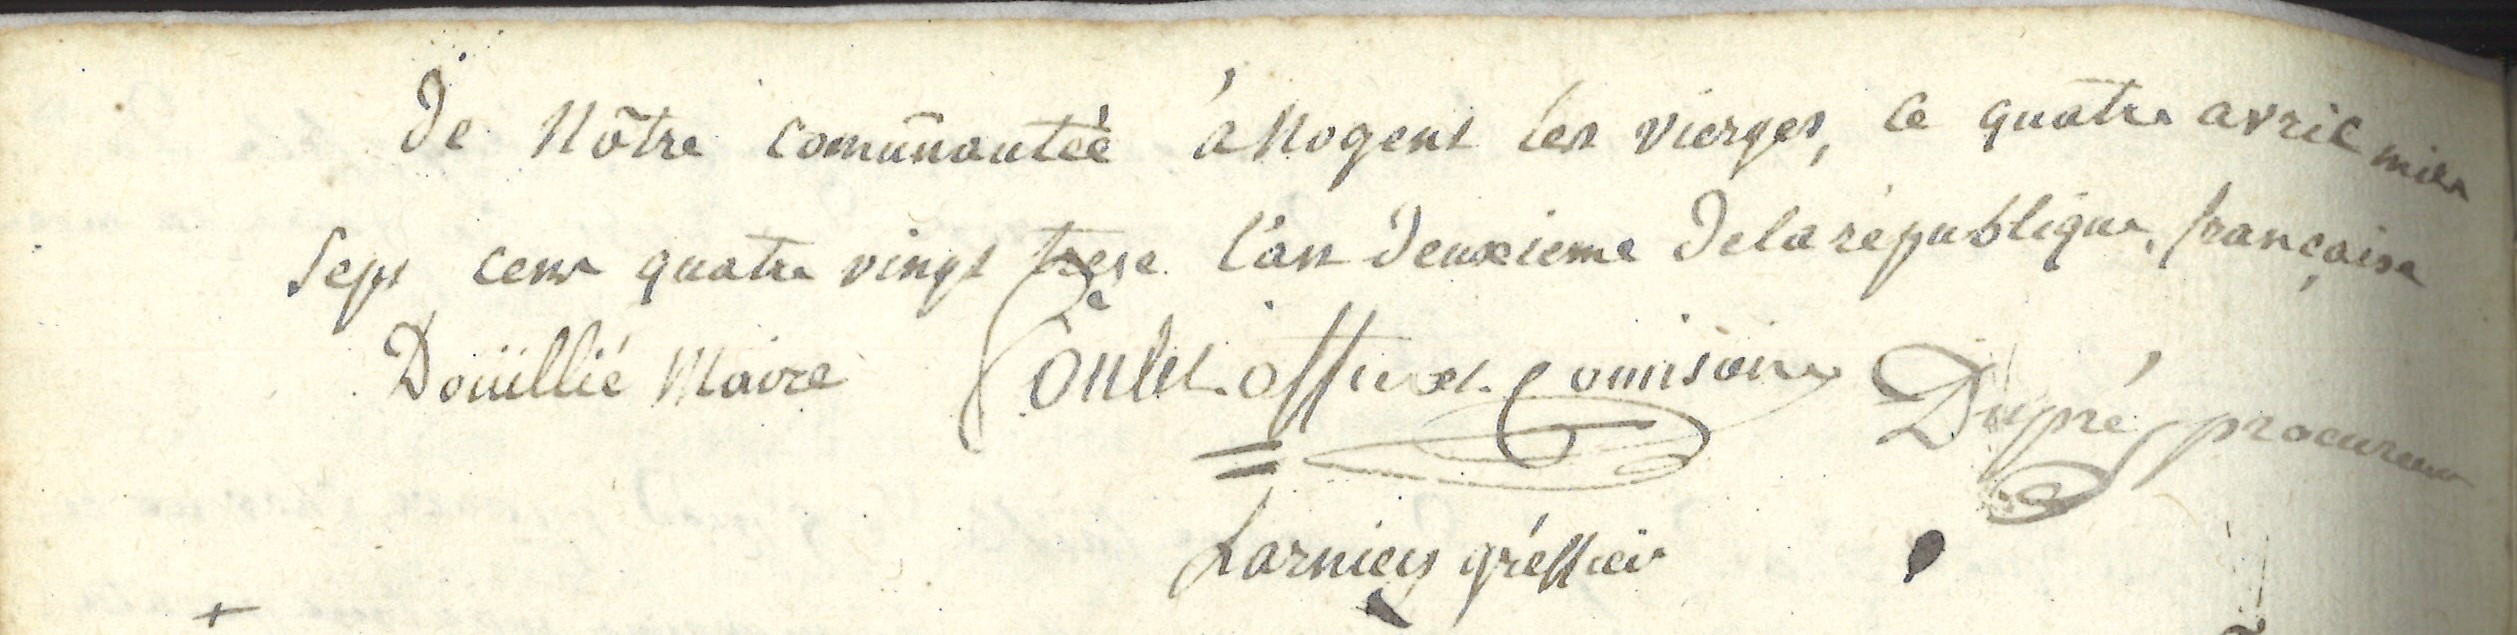 De Nôtre comm̃unautée à Nogent les vierges, ce quatre avril mille
Sept cens quatre vingt trese l'an deuxieme de la république française
Doüillié Maire Coulet officier Commisaire Dupré procureur
Larniey gréffier